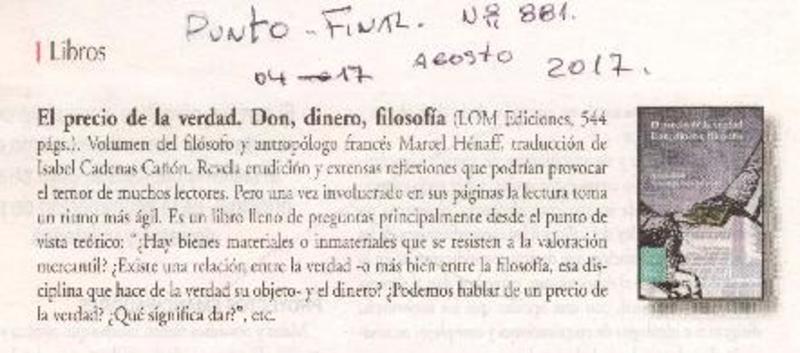 PUNTO - FINAL. Nº 881.
04 - 17 AGOSTO 2017.
| Libros
El precio de la verdad. Don, dinero, filosofía (LOM Ediciones, 544
págs.). Volumen del filósofo y antropólogo francés Marcel Hénaff, traducción de
Isabel Cadenas Cañón. Revela erudición y extensas reflexiones que podrían provocar
el temor de muchos lectores. Pero una vez involucrado en sus páginas la lectura toma
un ritmo más ágil. Es un libro lleno de preguntas principalmente desde el punto de
vista teórico: "¿Hay bienes materiales o inmateriales que se resisten a la valoración
mercantil? ¿Existe una relación entre la verdad -o más bien entre la filosofía, esa dis-
ciplina que hace de la verdad su objeto- y el dinero? ¿Podemos hablar de un precio de
la verdad? ¿Qué significa dar?", etc.
El precio de la verdad
Don, dinero, filosofía